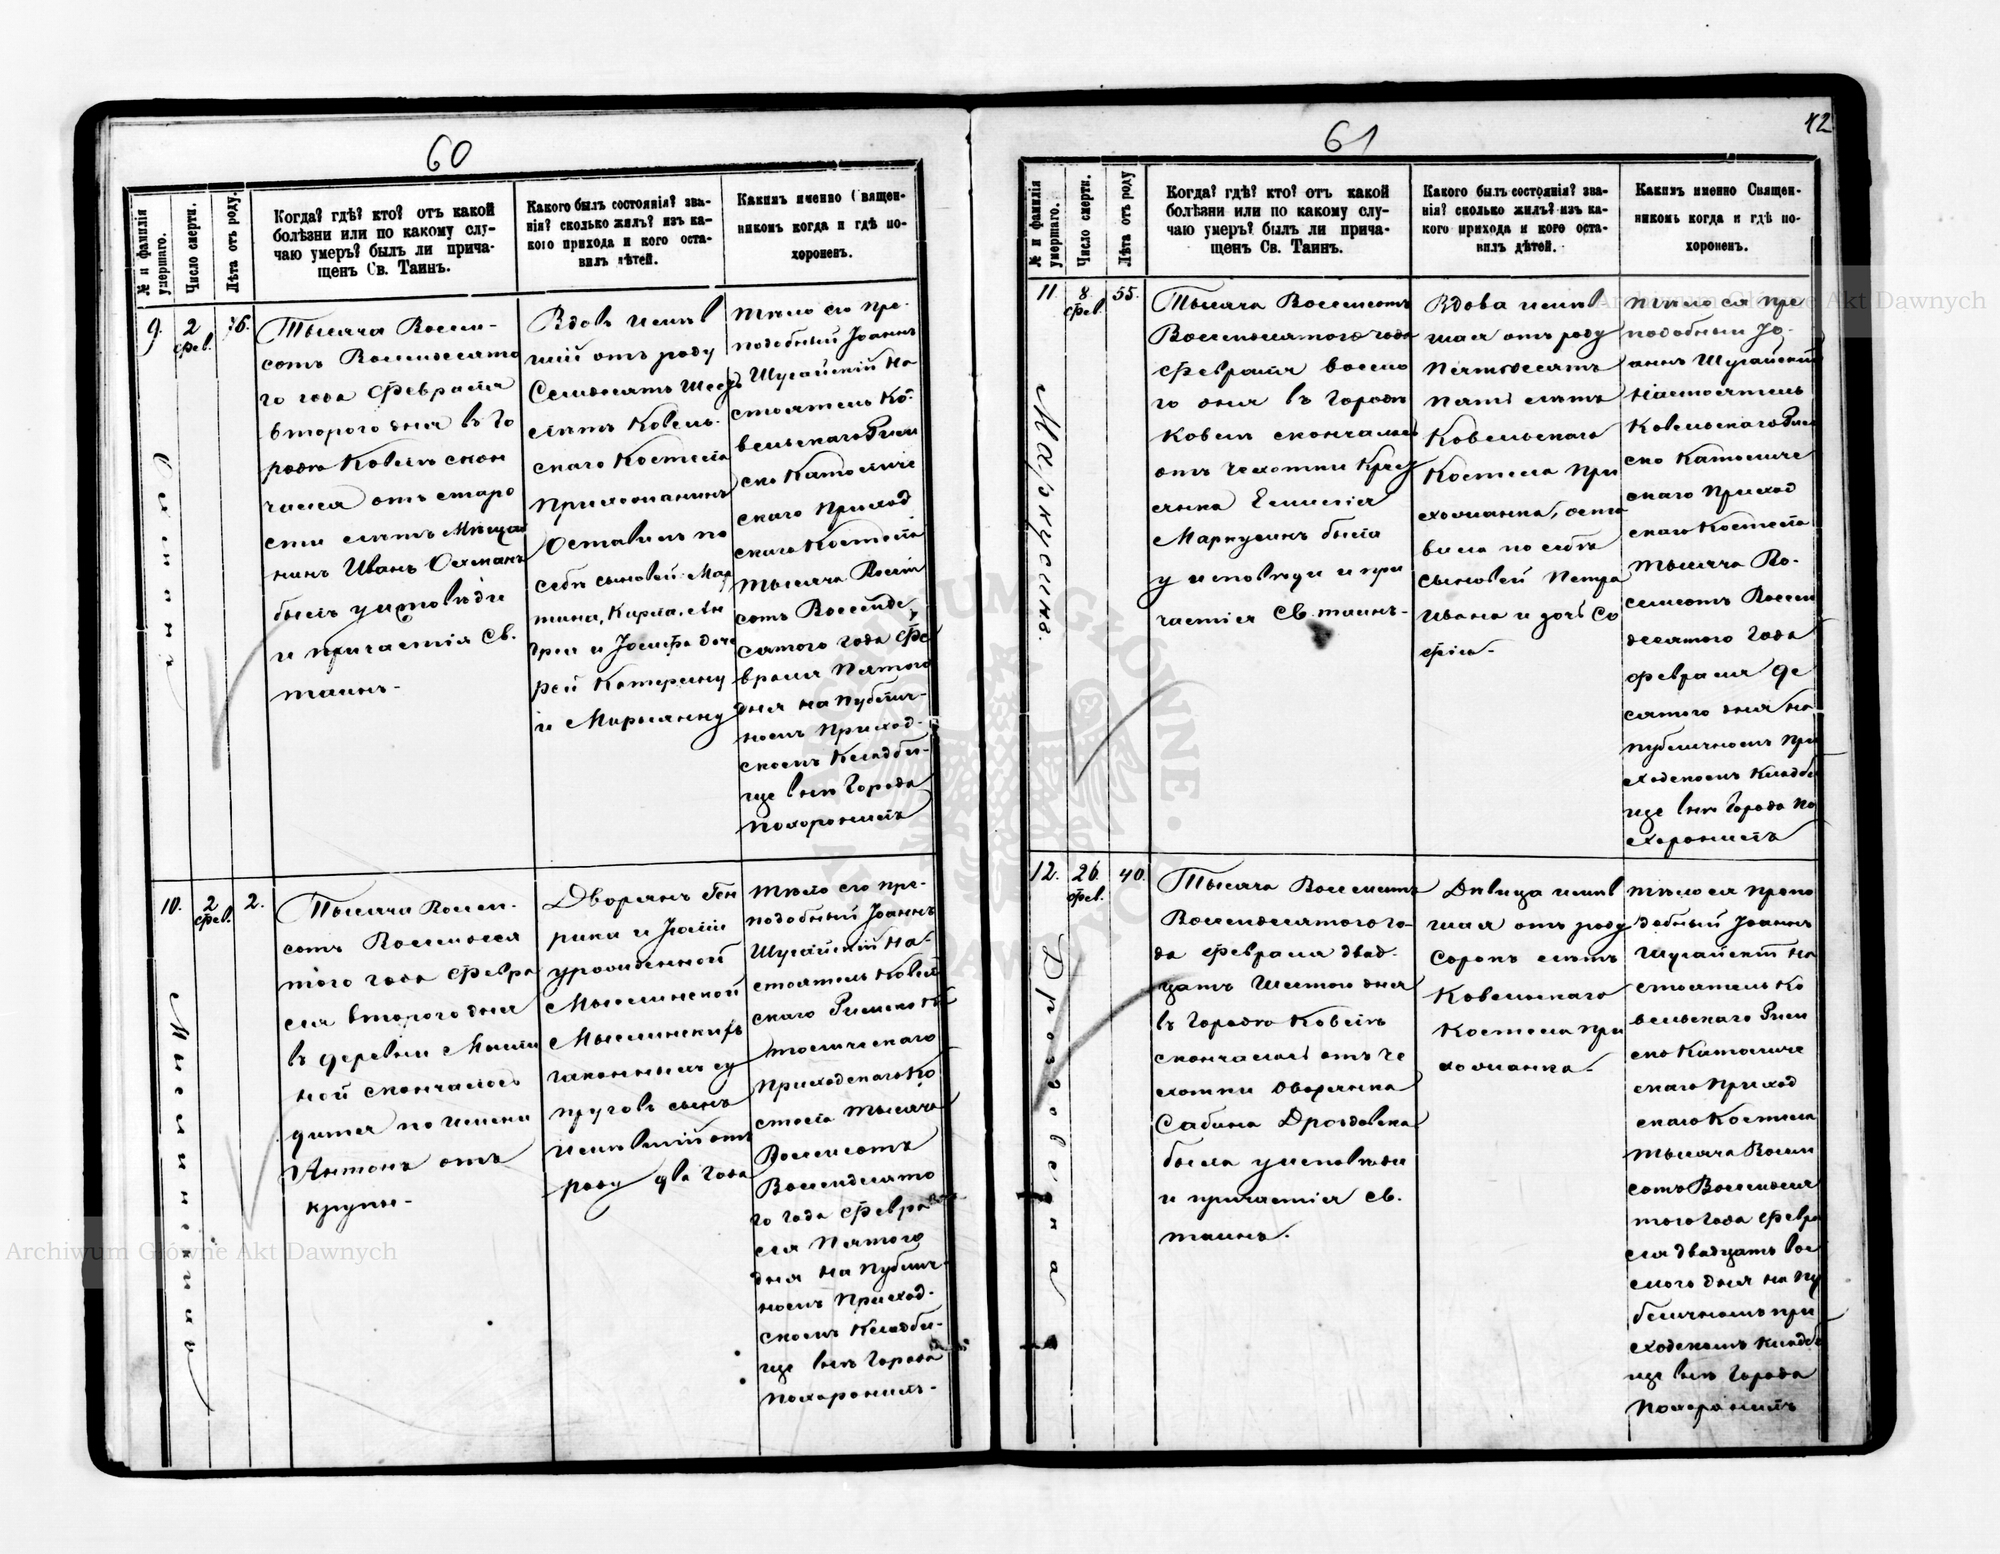 60
№ и фамилія умершаго.
Число смерти.
Лѣта отъ роду.
Когда? гдѣ? кто? отъ какой
болѣзни или по какому слу-
чаю умеръ? былъ ли прича-
щенъ Св. Таинъ.
Какого былъ состоянія? зва-
нія? сколько жилъ? изъ ка-
кого прихода и кого оста-
вилъ дѣтей.
Какимъ именно Священ-
никомъ когда и гдѣ по-
хороненъ.
9.
2
Фев.
76.
Тысяча Восем-
сотъ Восемдесято
го года Февраля
второго дня въ Го
родѣ Ковелѣ скон
чался отъ старо
сти лѣтъ Мѣща
нинъ Иванъ
былъ у исповѣди
и причастія Св.
таинъ-
Вдовъ имѣв
шій отъ роду
Семдесятъ Шесть
лѣтъ Ковель-
скаго Костела
прихожанинъ
Оставилъ по
себѣ сыновей Мар
тина, Карла, Ан
дрея и Іосифа доче
рей Катерину
и Марыянну
тѣло его пре-
подобный Іоаннъ
Шугайскій На
стоятель Ко-
вельскаго Рим
ско Католиче
скаго приход
скаго Костела
тысяча Восем
сотъ Восемде-
сятого года Фе
враля Пятого
дня на публич-
номъ приход-
скомъ Кладби-
ще внѣ Города
похоронилъ
10.
2
Фев.
2.
Мыслинскій
Тысяча Восем-
сотъ Восемдеся
того года Февра
ля второго дня
въ деревни
ной скончалось
дитя по имени
Антонъ отъ
крупы-
Дворянъ Ген
рика и Юліи
урожденной
Мыслинской
Мыслинскихъ
законныхъ су
пруговъ сынъ
имѣвшій отъ
роду два года
тѣло его пре-
подобный Іоаннъ
Шугайскій На-
стоятель Ковель
скаго Римско Ка
толическаго
приходскаго Ко
стела тысяча
Восемсотъ
Восемдесято
го года Февра
ля Пятого
дня на публич-
номъ приход-
скомъ Кладби-
ще внѣ Города
похоронилъ-
61
42
№ и фамилія умершаго.
Число смерти.
Лѣта отъ роду
Когда? гдѣ? кто? отъ какой
болѣзни или по какому слу-
чаю умеръ? былъ ли прича-
щенъ Св. Таинъ.
Какого былъ состоянія? зва-
нія? сколько жилъ? изъ ка-
кого прихода и кого оста-
вилъ дѣтей.
Какимъ именно Священ-
никомъ когда и гдѣ по-
хороненъ.
11.
8
Фев.
55.
Маркусинъ.
Тысяча Восемсотъ
Восемдесятого года
Февраля восмо
го дня въ Городѣ
Ковелѣ скончалась
отъ чехотки Крес
янка Емилія
Маркусинъ была
у исповѣди и при
частія Св. таинъ-
Вдова имѣв
шая отъ роду
Пятьдесятъ
пять лѣтъ
Ковельскаго
Костела при
хожанка, оста
вила по себѣ
сыновей Петра
Ивана и дочь Со
фію-
тѣло ея пре
подобный Іо-
аннъ Шугайскій
Настоятель
Ковельскаго Рим
ско Католиче
скаго приход
скаго Костела
тысяча Во-
семсотъ Восем
десятого Года
февраля де
сятого дня на
публичномъ при
ходскомъ Кладби
ще внѣ Города по
хоронилъ
12.
26
Фев.
40.
Дроздовска
Тысяча Восемсотъ
Восемдесятого го-
да Февраля двад-
цать Шестого дня
въ Городѣ Ковелѣ
скончалась отъ че
хотки дворянка
Сабина Дроздовска
была у исповѣди
и причастія Св.
таинъ.
Дѣвица имѣв
шая отъ роду
Сорокъ лѣтъ
Ковельскаго
Костела при
хожанка-
тѣло ея препо
добный Іоаннъ
Шугайскій На
стоятель Ко
вельскаго Рим
ско Католиче
скаго приход
скаго Костела
тысяча Восем
сотъ Восемдеся
того Года Февра
ля двадцать вос
мого дня на пу
бличномъ при
ходскомъ кладби
ще внѣ Города
похоронилъ
Archiwum Główne Akt Dawnych
Archiwum Główne Akt Dawnych
ARCHIWUM GŁÓWNE AKT DAWNYCH